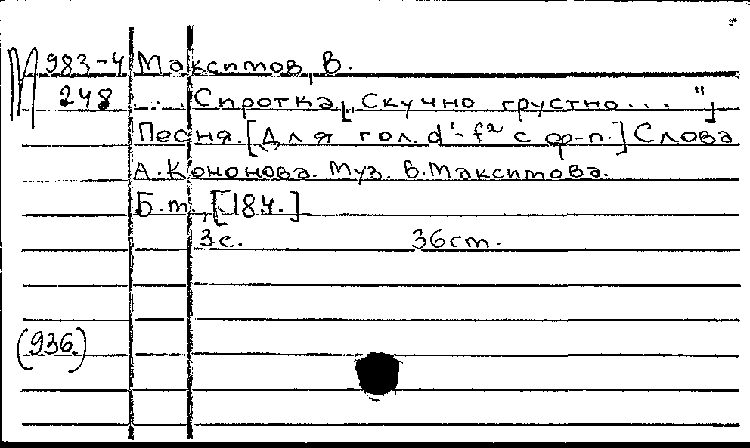 М 983-4 Максимов, В.
248 ... Сиротка [„Скучно грустно... "]
Песня. [Для гол. d¹-f² с ф-п.] Слова
А. Кононова. Муз. В. Максимова.
Б.т., [184.]
3с. 36см.
(936.)